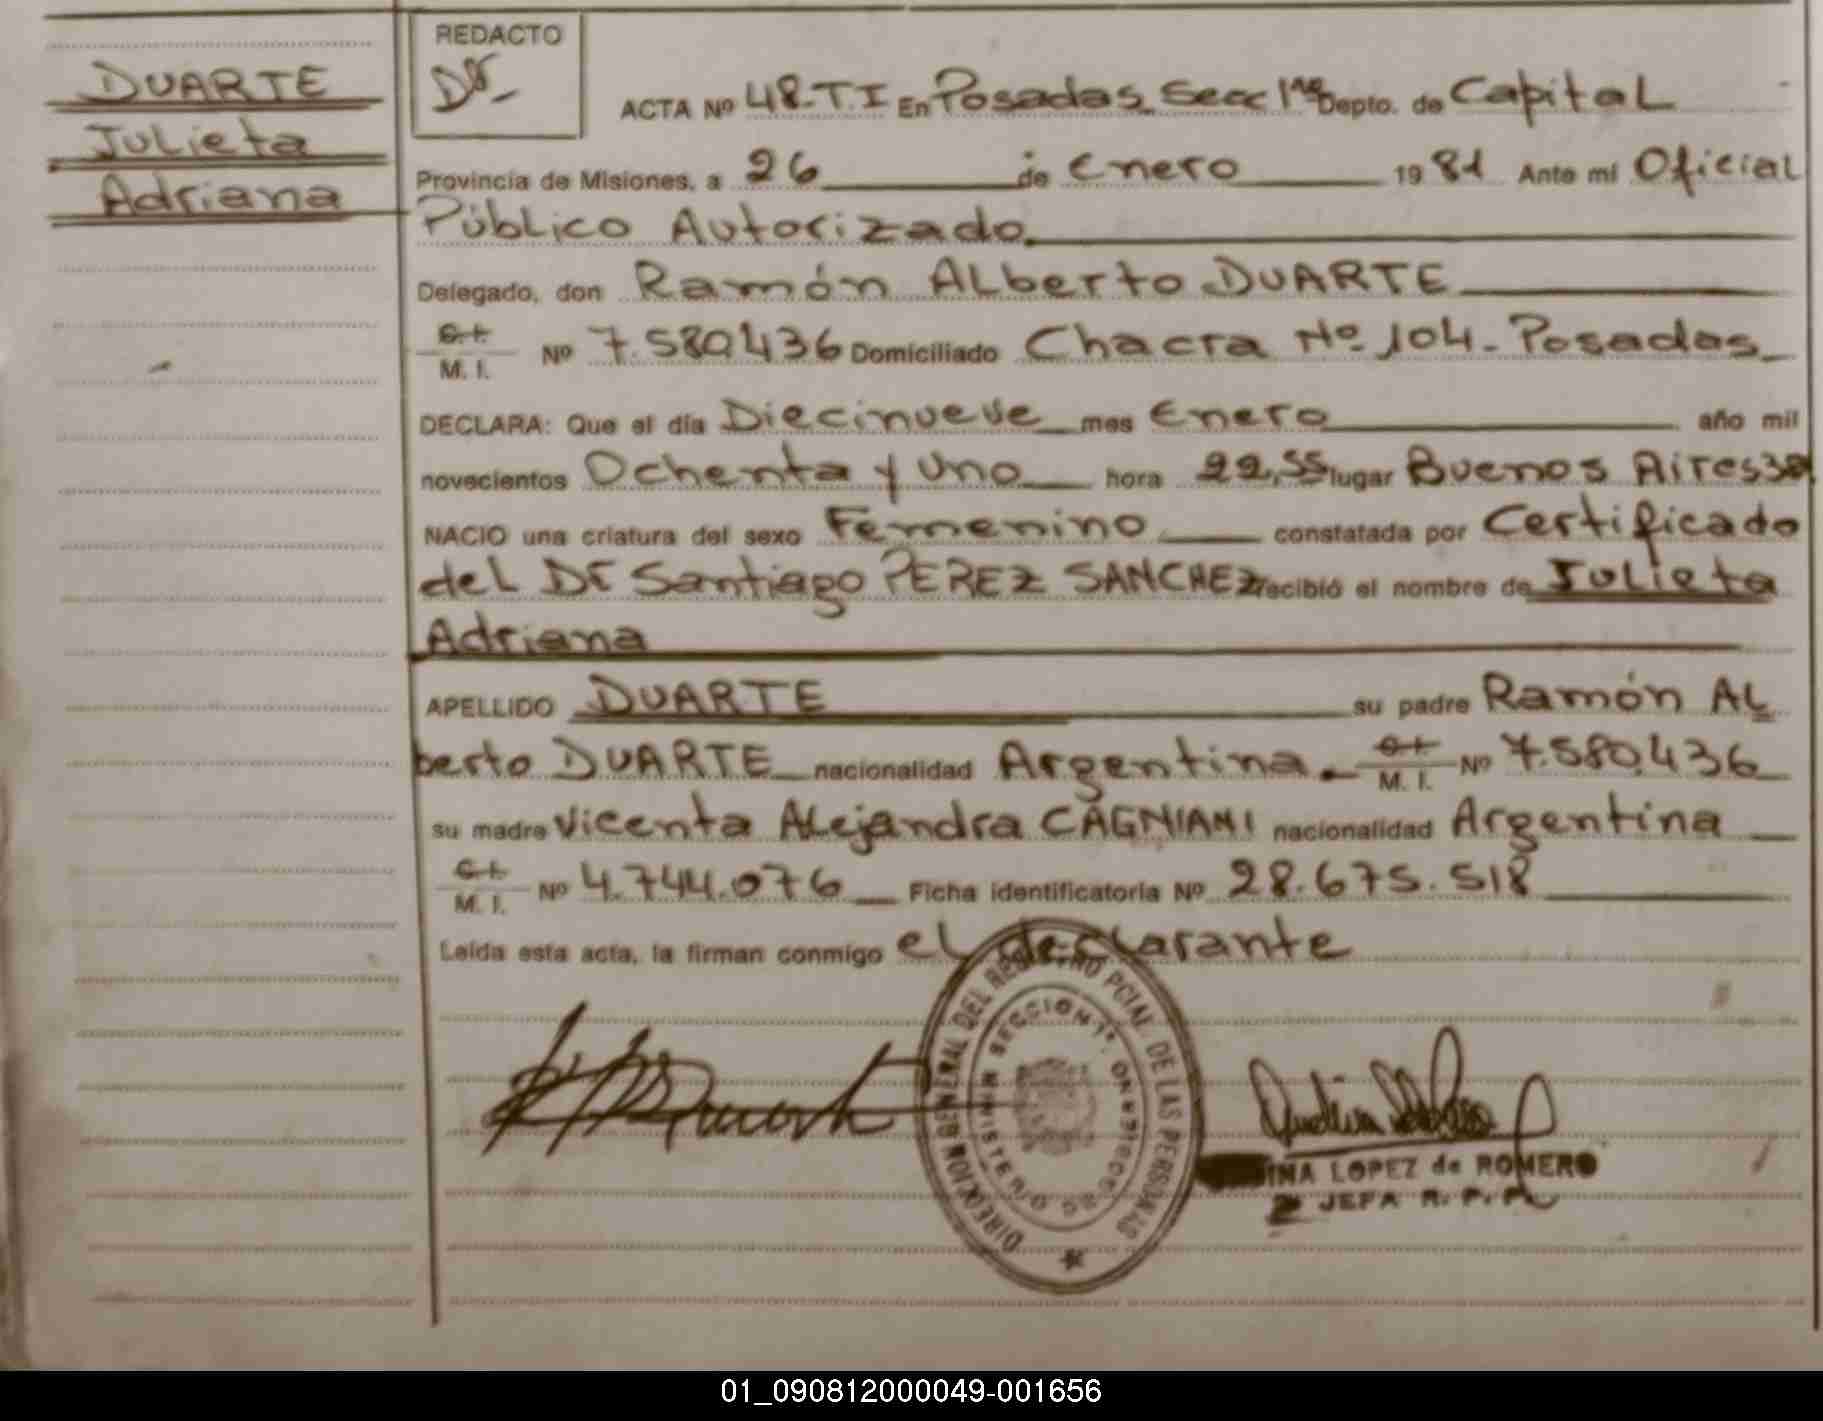 DUARTE
Julieta
Adriana
REDACTO
ACTA Nº 48. T. I En Posadas Secc 1ra Depto. de Capital
Provincia de Misiones, a 26 de Enero 1981 Ante mí Oficial
Público Autorizado.
Delegado, don Ramón Alberto DUARTE
C.I.
M. I. Nº 7.580.436 Domiciliado Chacra Nº 104 - Posadas
DECLARA: Que el día Diecinueve mes Enero año mil
novecientos Ochenta y Uno hora 22,55 lugar Buenos Aires
NACIO una criatura del sexo Femenino constatada por Certificado
del Dr Santiago PEREZ SANCHEZ recibió el nombre de Julieta
Adriana
APELLIDO DUARTE su padre Ramón Al
berto DUARTE nacionalidad Argentina. C.I.
M. I. Nº 7.580.436
su madre Vicenta Alejandra CAGNIANI nacionalidad Argentina
C.I.
M. I. Nº 4.744.076 Ficha identificatoria Nº 28.675.518
Leída esta acta, la firman conmigo el declarante
DIRECCION GENERAL DEL REGISTRO PCIAL. DE LAS PERSONAS
SECCION 1ª.
INA LOPEZ de ROMERO
JEFA R. P. P.
01_090812000049-001656